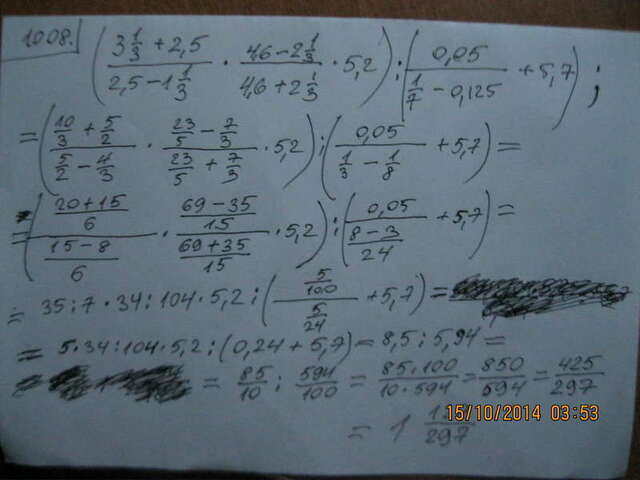 1008. ((3 1/3 + 2,5)/(2,5 - 1 1/3) · (4,6 - 2 1/3)/(4,6 + 2 1/3) · 5,2) : (0,05/(1/7 - 0,125) + 5,7) ;
= ((10/3 + 5/2)/(5/2 - 4/3) · (23/5 - 7/3)/(23/5 + 7/3) · 5,2) : (0,05/(1/3 - 1/8) + 5,7) =
= (((20+15)/6)/((15-8)/6) · ((69-35)/15)/((69+35)/15) · 5,2) : (0,05/((8-3)/24) + 5,7) =
= 35 : 7 · 34 : 104 · 5,2 : ((5/100)/(5/24) + 5,7) =
= 5·34 : 104 · 5,2 : (0,24 + 5,7) = 8,5 : 5,94 =
= = 85/10 : 594/100 = (85·100)/(10·594) = 850/594 = 425/297
= 1 /297
15/10/2014 03:53